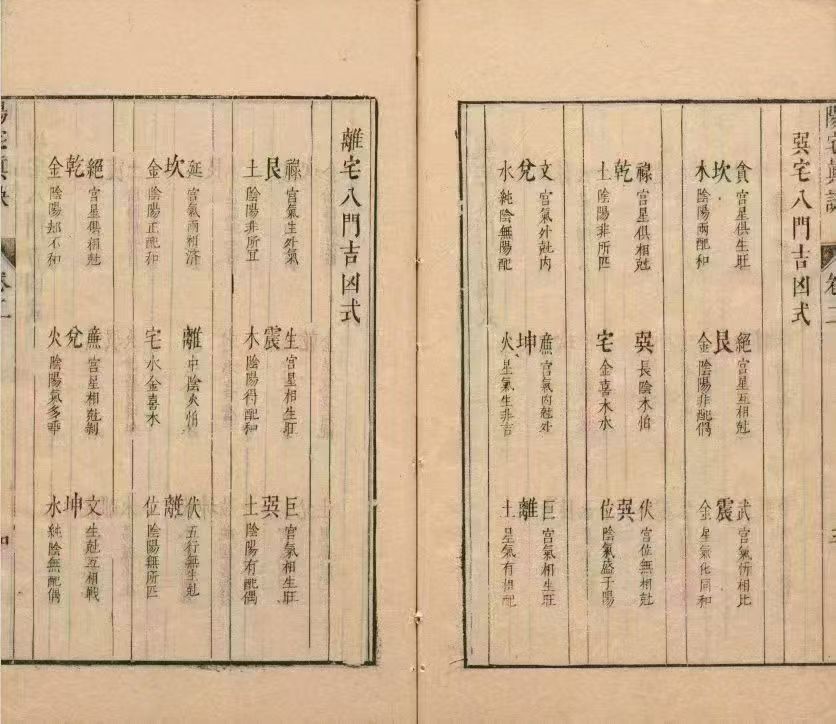 陽宅眞訣
卷二
巽宅八門吉凶式
貪坎木
宮星俱生旺
陰陽兩配和
絕艮金
宮星互相尅
陰陽非配偶
武震金
宮氣忻相比
星氣化同和
祿乾土
宮星俱相尅
陰陽非所匹
巽宅
長陰木怕
金喜木水
伏巽位
宮位無相尅
陰氣盛于陽
文兌水
宮氣外尅內
純陰無陽配
廉坤火
宮氣內尅外
星氣生非吉
巨離土
宮氣相生旺
星氣有相配
離宅八門吉凶式
祿艮土
宮氣生外氣
陰陽非所宜
生震木
宮星相生旺
陰陽得配和
巨巽土
宮氣相生旺
陰陽有配偶
延坎金
宮氣兩相濟
陰陽正配和
離宅
中陰火怕
水金喜木
伏離位
五行無生尅
陰陽無所匹
絕乾金
宮星俱相尅
陰陽却不和
廉兌火
宮星相尅制
陰陽氣多乖
文坤水
生尅互相戰
純陰無配偶
陽宅眞訣
卷二